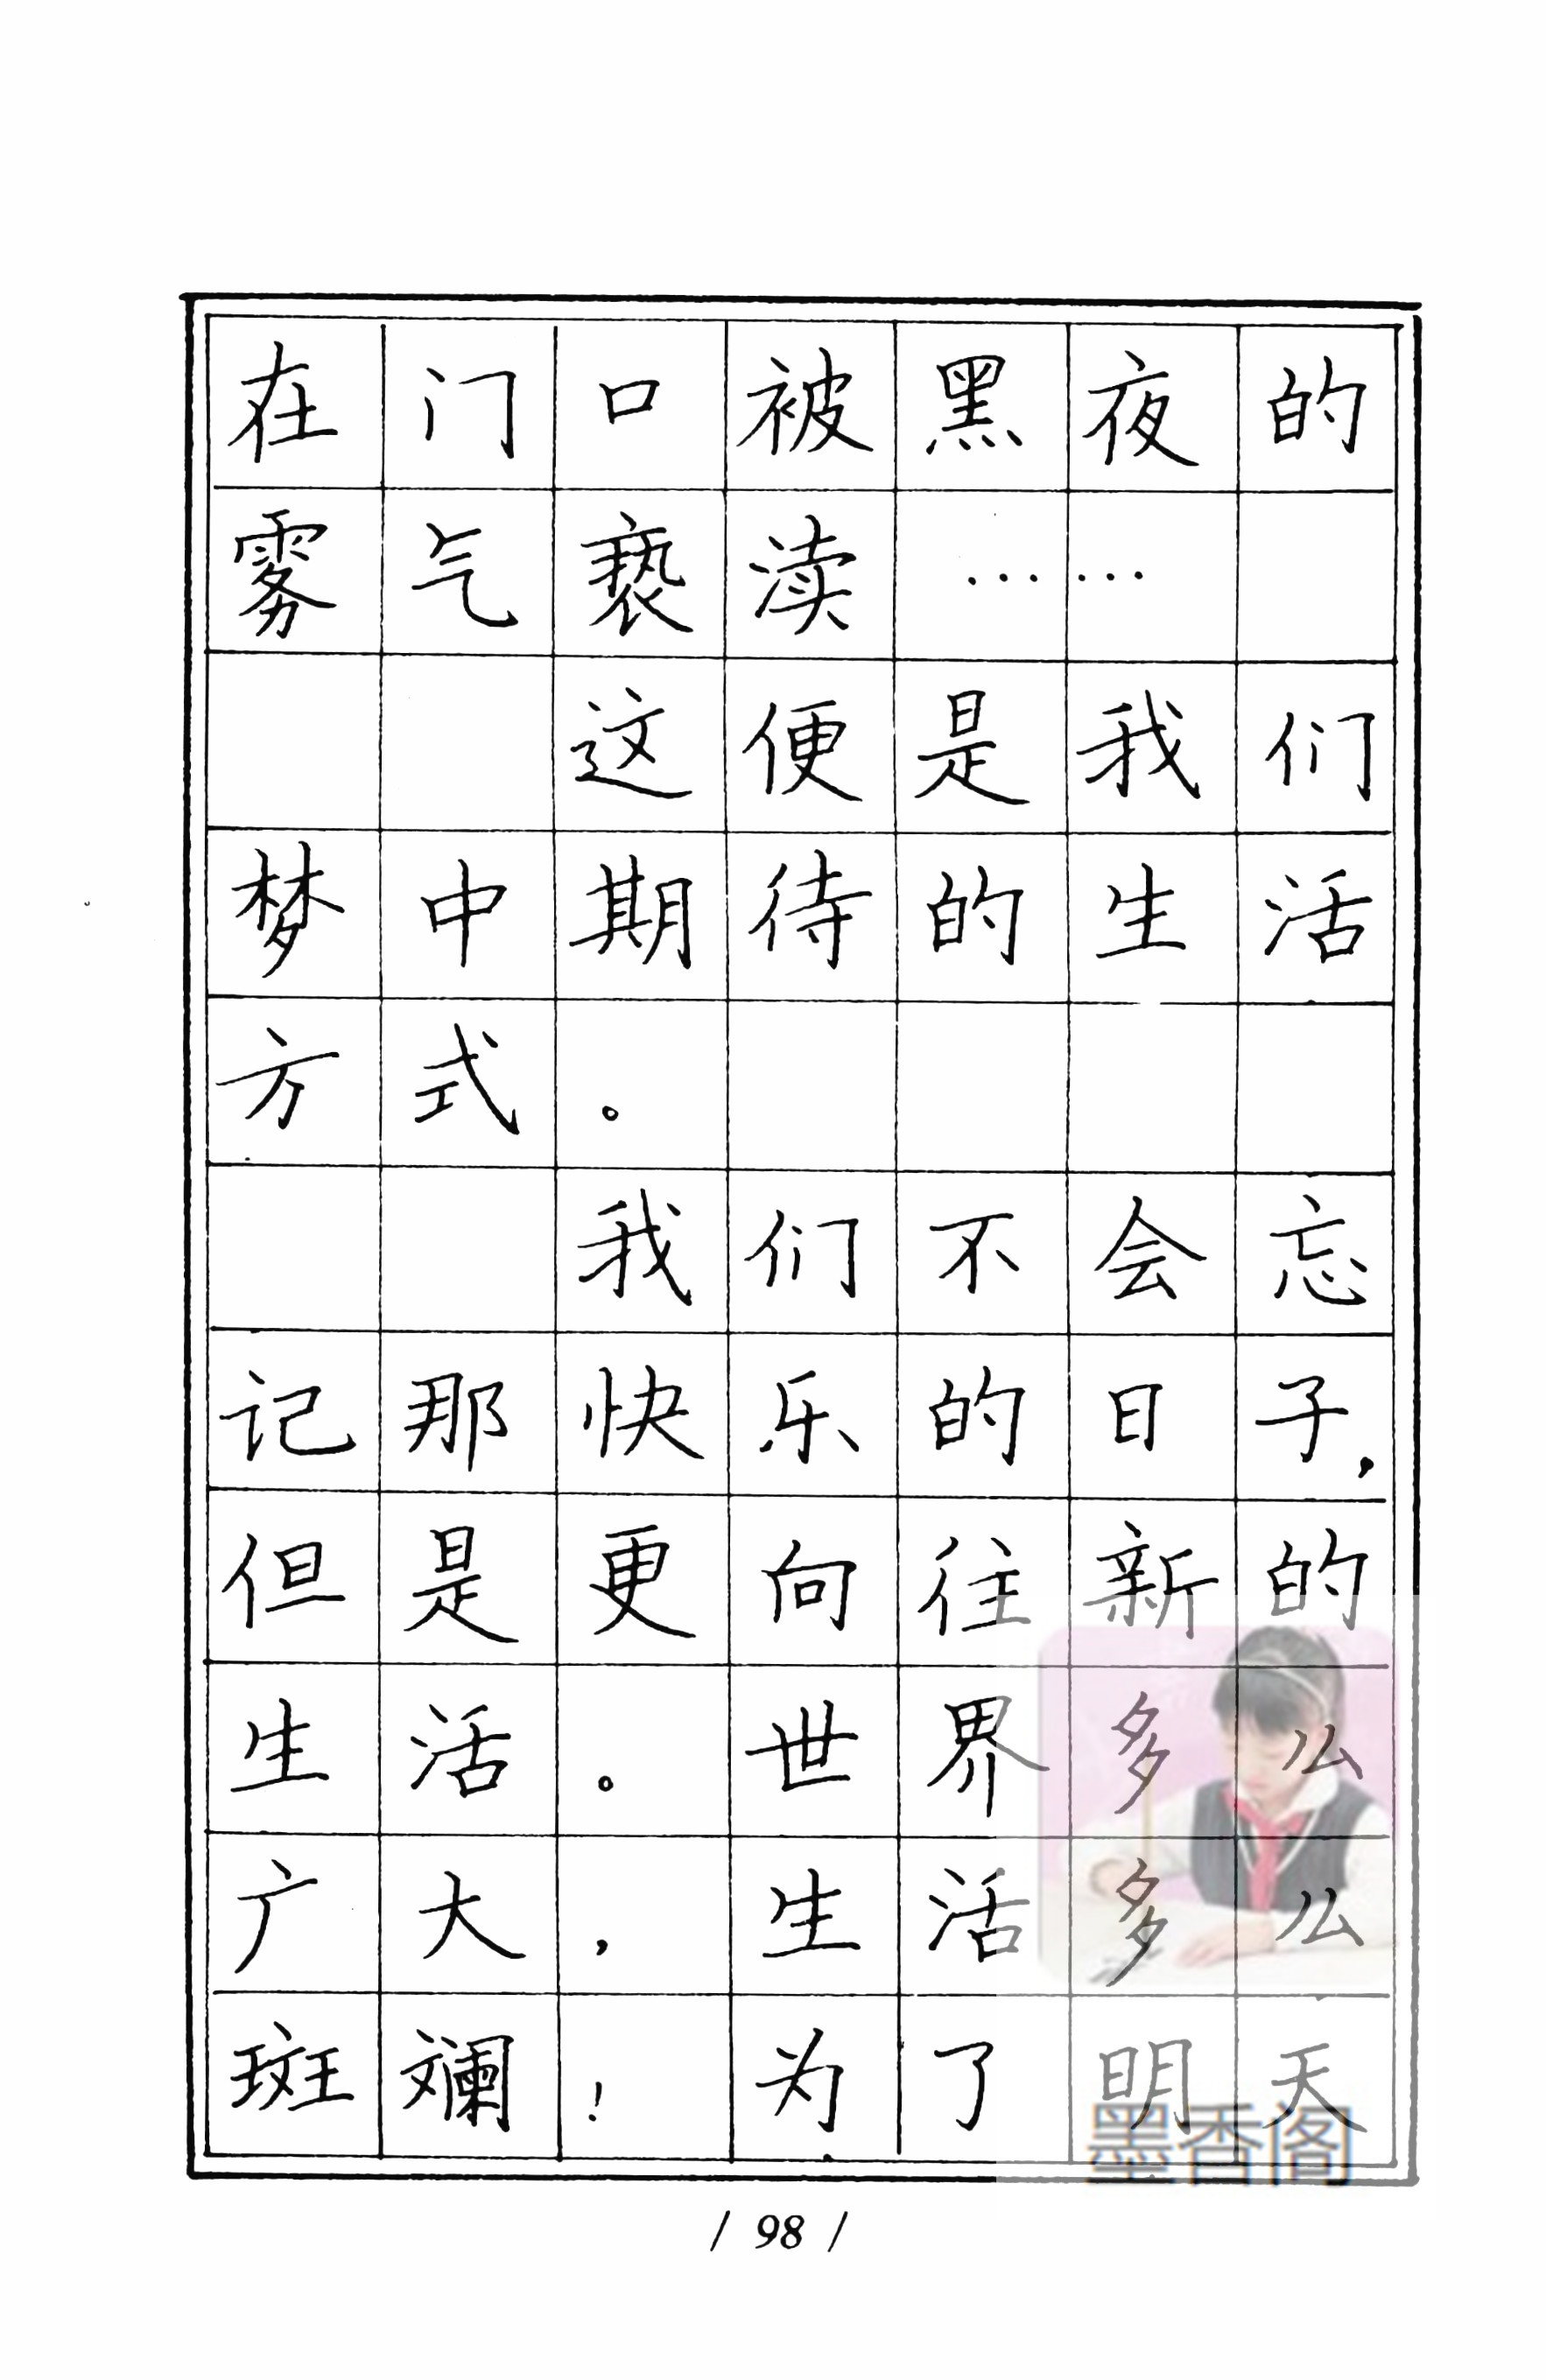 在门口被黑夜的
雾气亵渎……
这便是我们
梦中期待的生活
方式。
我们不会忘
记那快乐的日子，
但是更向往新的
生活。世界多么
广大，生活多么
斑斓！为了明天
墨香阁
/ 98 /